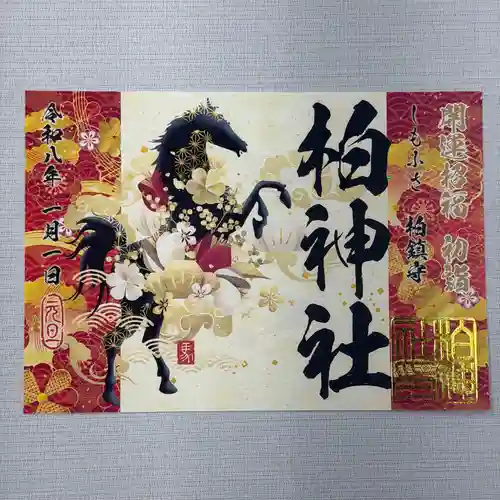 開運招福 初詣
しもふさ 柏鎮守
柏神社
令和八年 一月一日
元旦
馬
柏神社